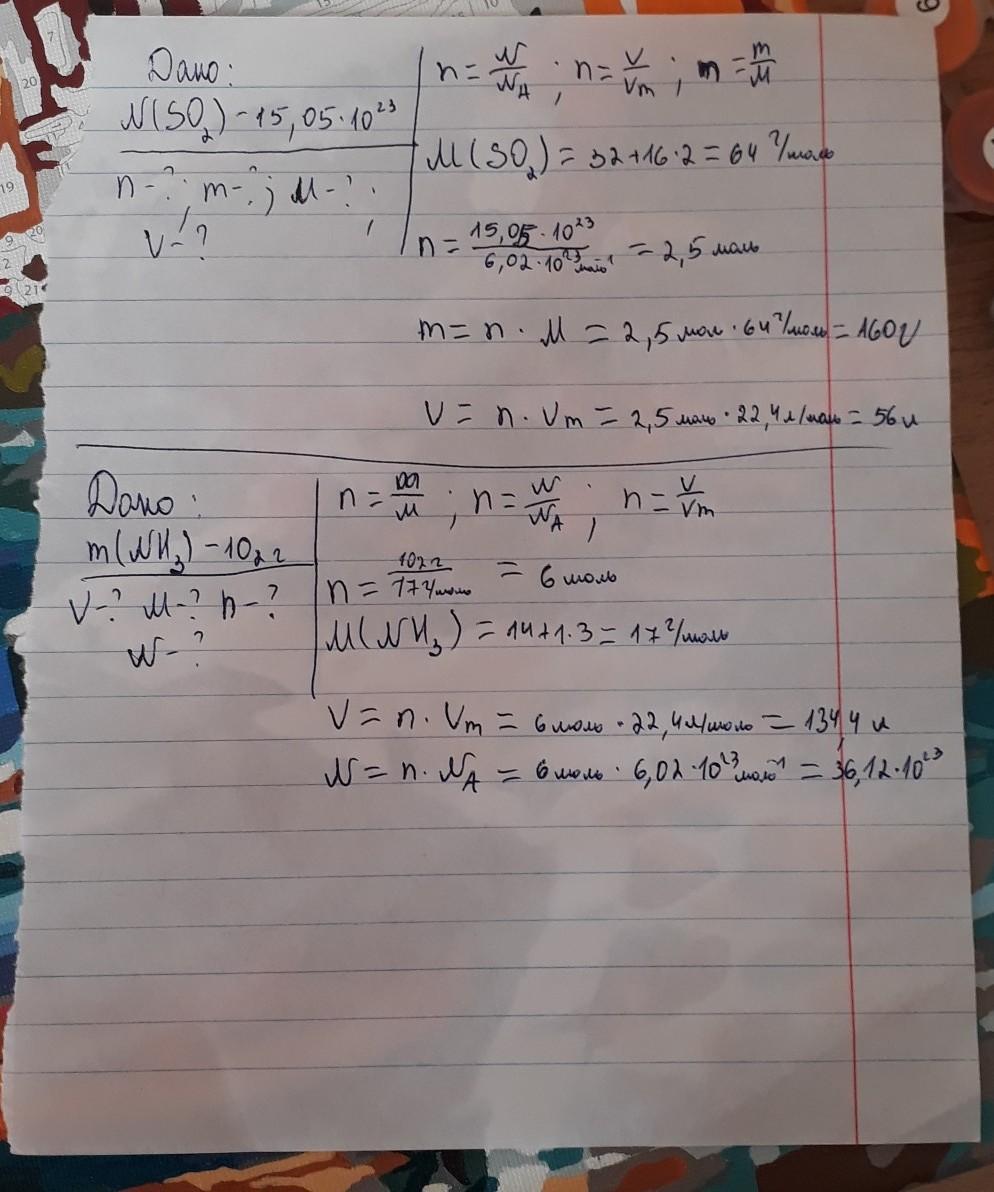 Дано:
N(SO₂) - 15,05·10²³
n-?; m-?; M-?;
V-?
n = N/N_A ; n = V/Vm ; m = m/M
M(SO₂) = 32+16·2 = 64 г/моль
n = 15,05·10²³ / 6,02·10²³ моль⁻¹ = 2,5 моль
m = n · M = 2,5 мол · 64 г/моль = 160 г
V = n · Vm = 2,5 моль · 22,4 л/моль = 56 л
Дано:
m(NH₃) - 102 г
V-? M-? n-?
N-?
n = m/M ; n = N/N_A ; n = V/Vm
n = 102 г / 17 г/моль = 6 моль
M(NH₃) = 14+1·3 = 17 г/моль
V = n · Vm = 6 моль · 22,4 л/моль = 134,4 л
N = n · N_A = 6 моль · 6,02·10²³ моль⁻¹ = 36,12·10²³